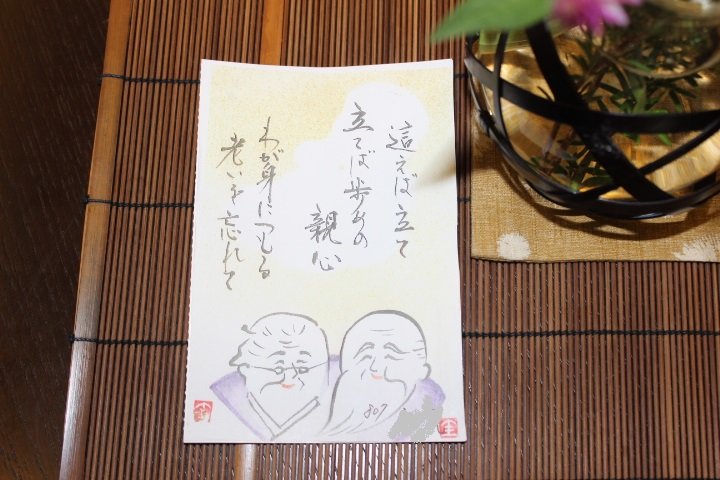 這えば立て
立てば歩めの
親心
わが身につもる
老いを忘れて
807